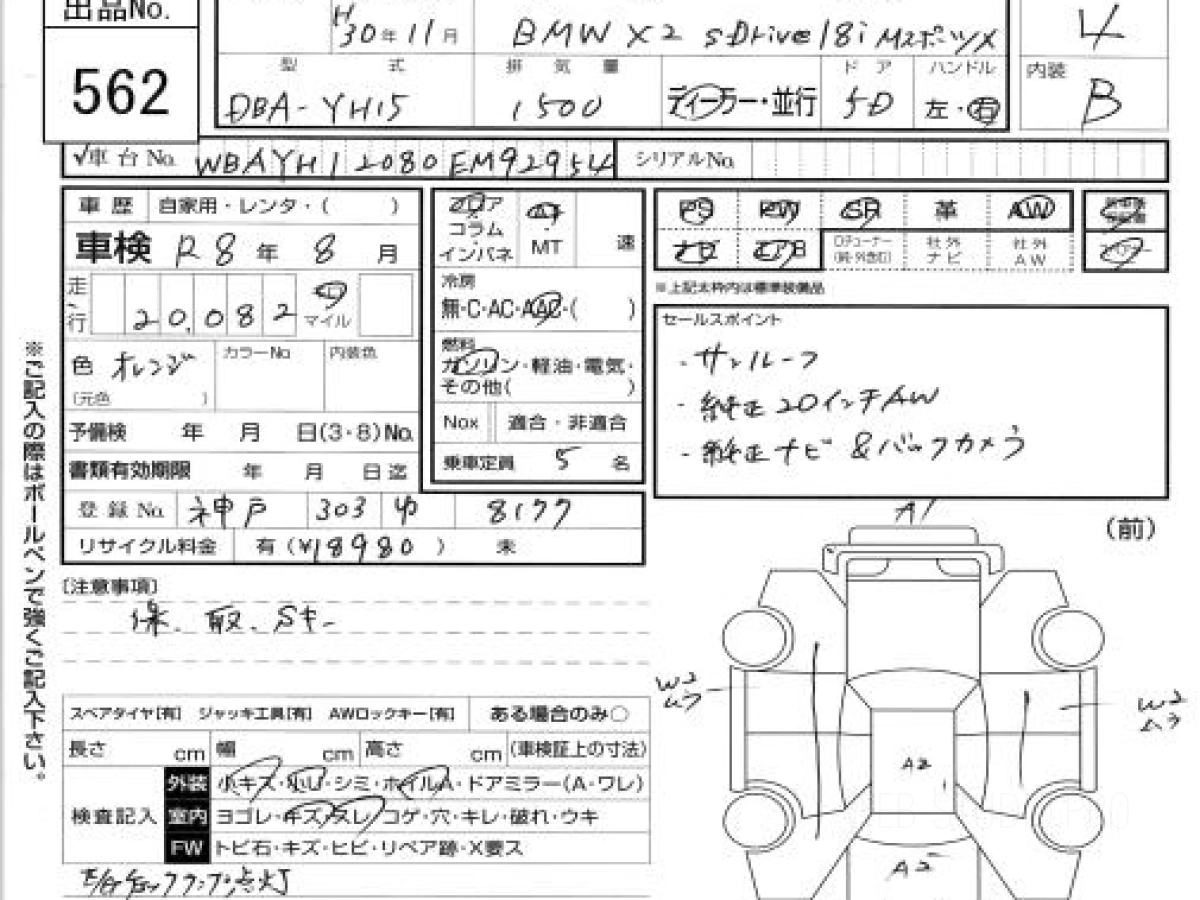 出品No.
562
H30年11月 BMW X2 sDrive18i MスポーツX 4
型式 排気量 ドア ハンドル 内装
DBA-YH15 1500 ディーラー・並行 5D 左・右 B
√車台No. WBAYH12080EM92954 シリアルNo.
車歴 自家用・レンタ・( )
車検 R8年 8月
走行 20,082 マイル
色 オレンジ カラーNo. 内装色
(元色 )
予備検 年 月 日(3・8)No.
書類有効期限 年 月 日迄
登録No. 神戸 303 8177
リサイクル料金 有(¥18980) 未
フロア AT
コラム
インパネ MT 速
冷房
無・C・AC・AAC・( )
燃料
ガソリン・軽油・電気・
その他( )
Nox 適合・非適合
乗車定員 5名
PS PW SR 革 AW
ナビ エアB Dチューナー(純・外含む) 社外ナビ 社外AW
※上記太枠内は標準装備品
セールスポイント
・サンルーフ
・純正20インチAW
・純正ナビ&バックカメラ
※ご記入の際はボールペンで強くご記入下さい。
[注意事項]
保、取、Sキー
スペアタイヤ[有] ジャッキ工具[有] AWロックキー[有] ある場合のみ○
長さ cm 幅 cm 高さ cm (車検証上の寸法)
検査記入
外装 小キズ・小U・シミ・ホイルA・ドアミラー(A・ワレ)
室内 ヨゴレ・キズ・スレ・コゲ・穴・キレ・破れ・ウキ
FW トビ石・キズ・ヒビ・リペア跡・X要ス
ランプ点灯
A1
(前)
W2
ムラ
W2
ムラ
A2
A2